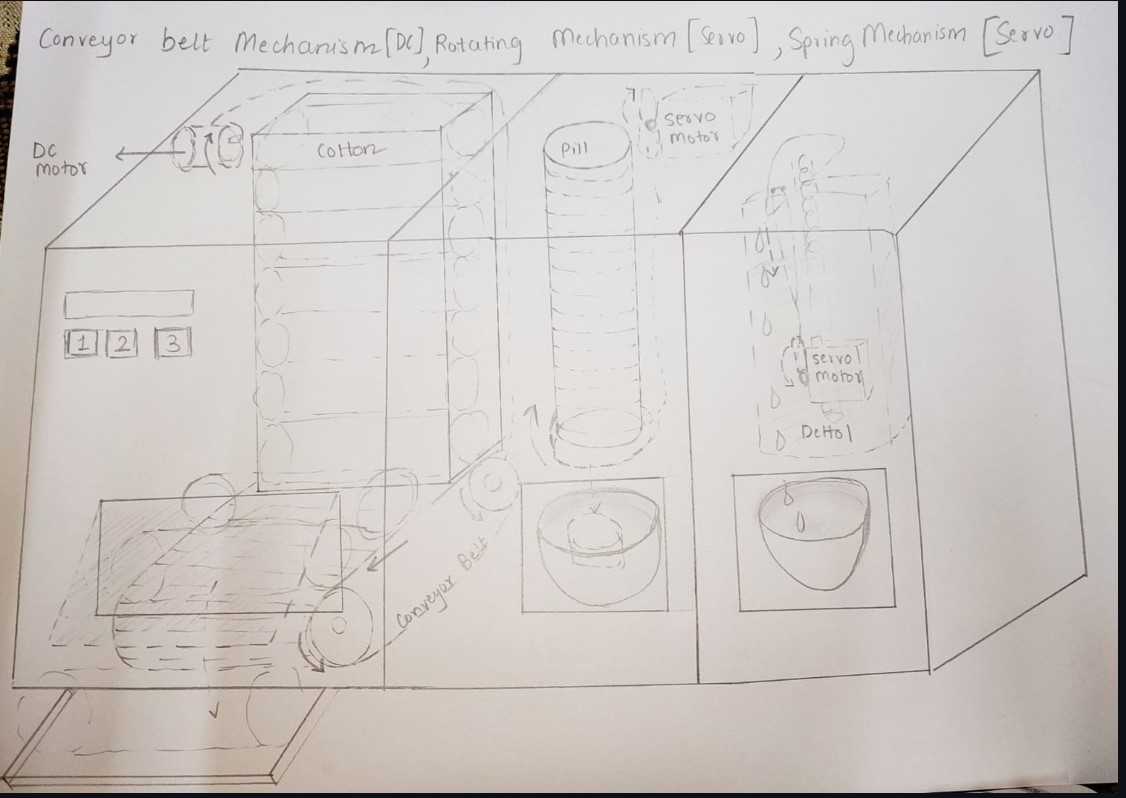 Conveyor belt Mechanism [DC], Rotating Mechanism [Servo], Spring Mechanism [Servo]
DC
motor
Cotton
Pill
servo
motor
1 2 3
servo
motor
Dettol
Conveyor Belt